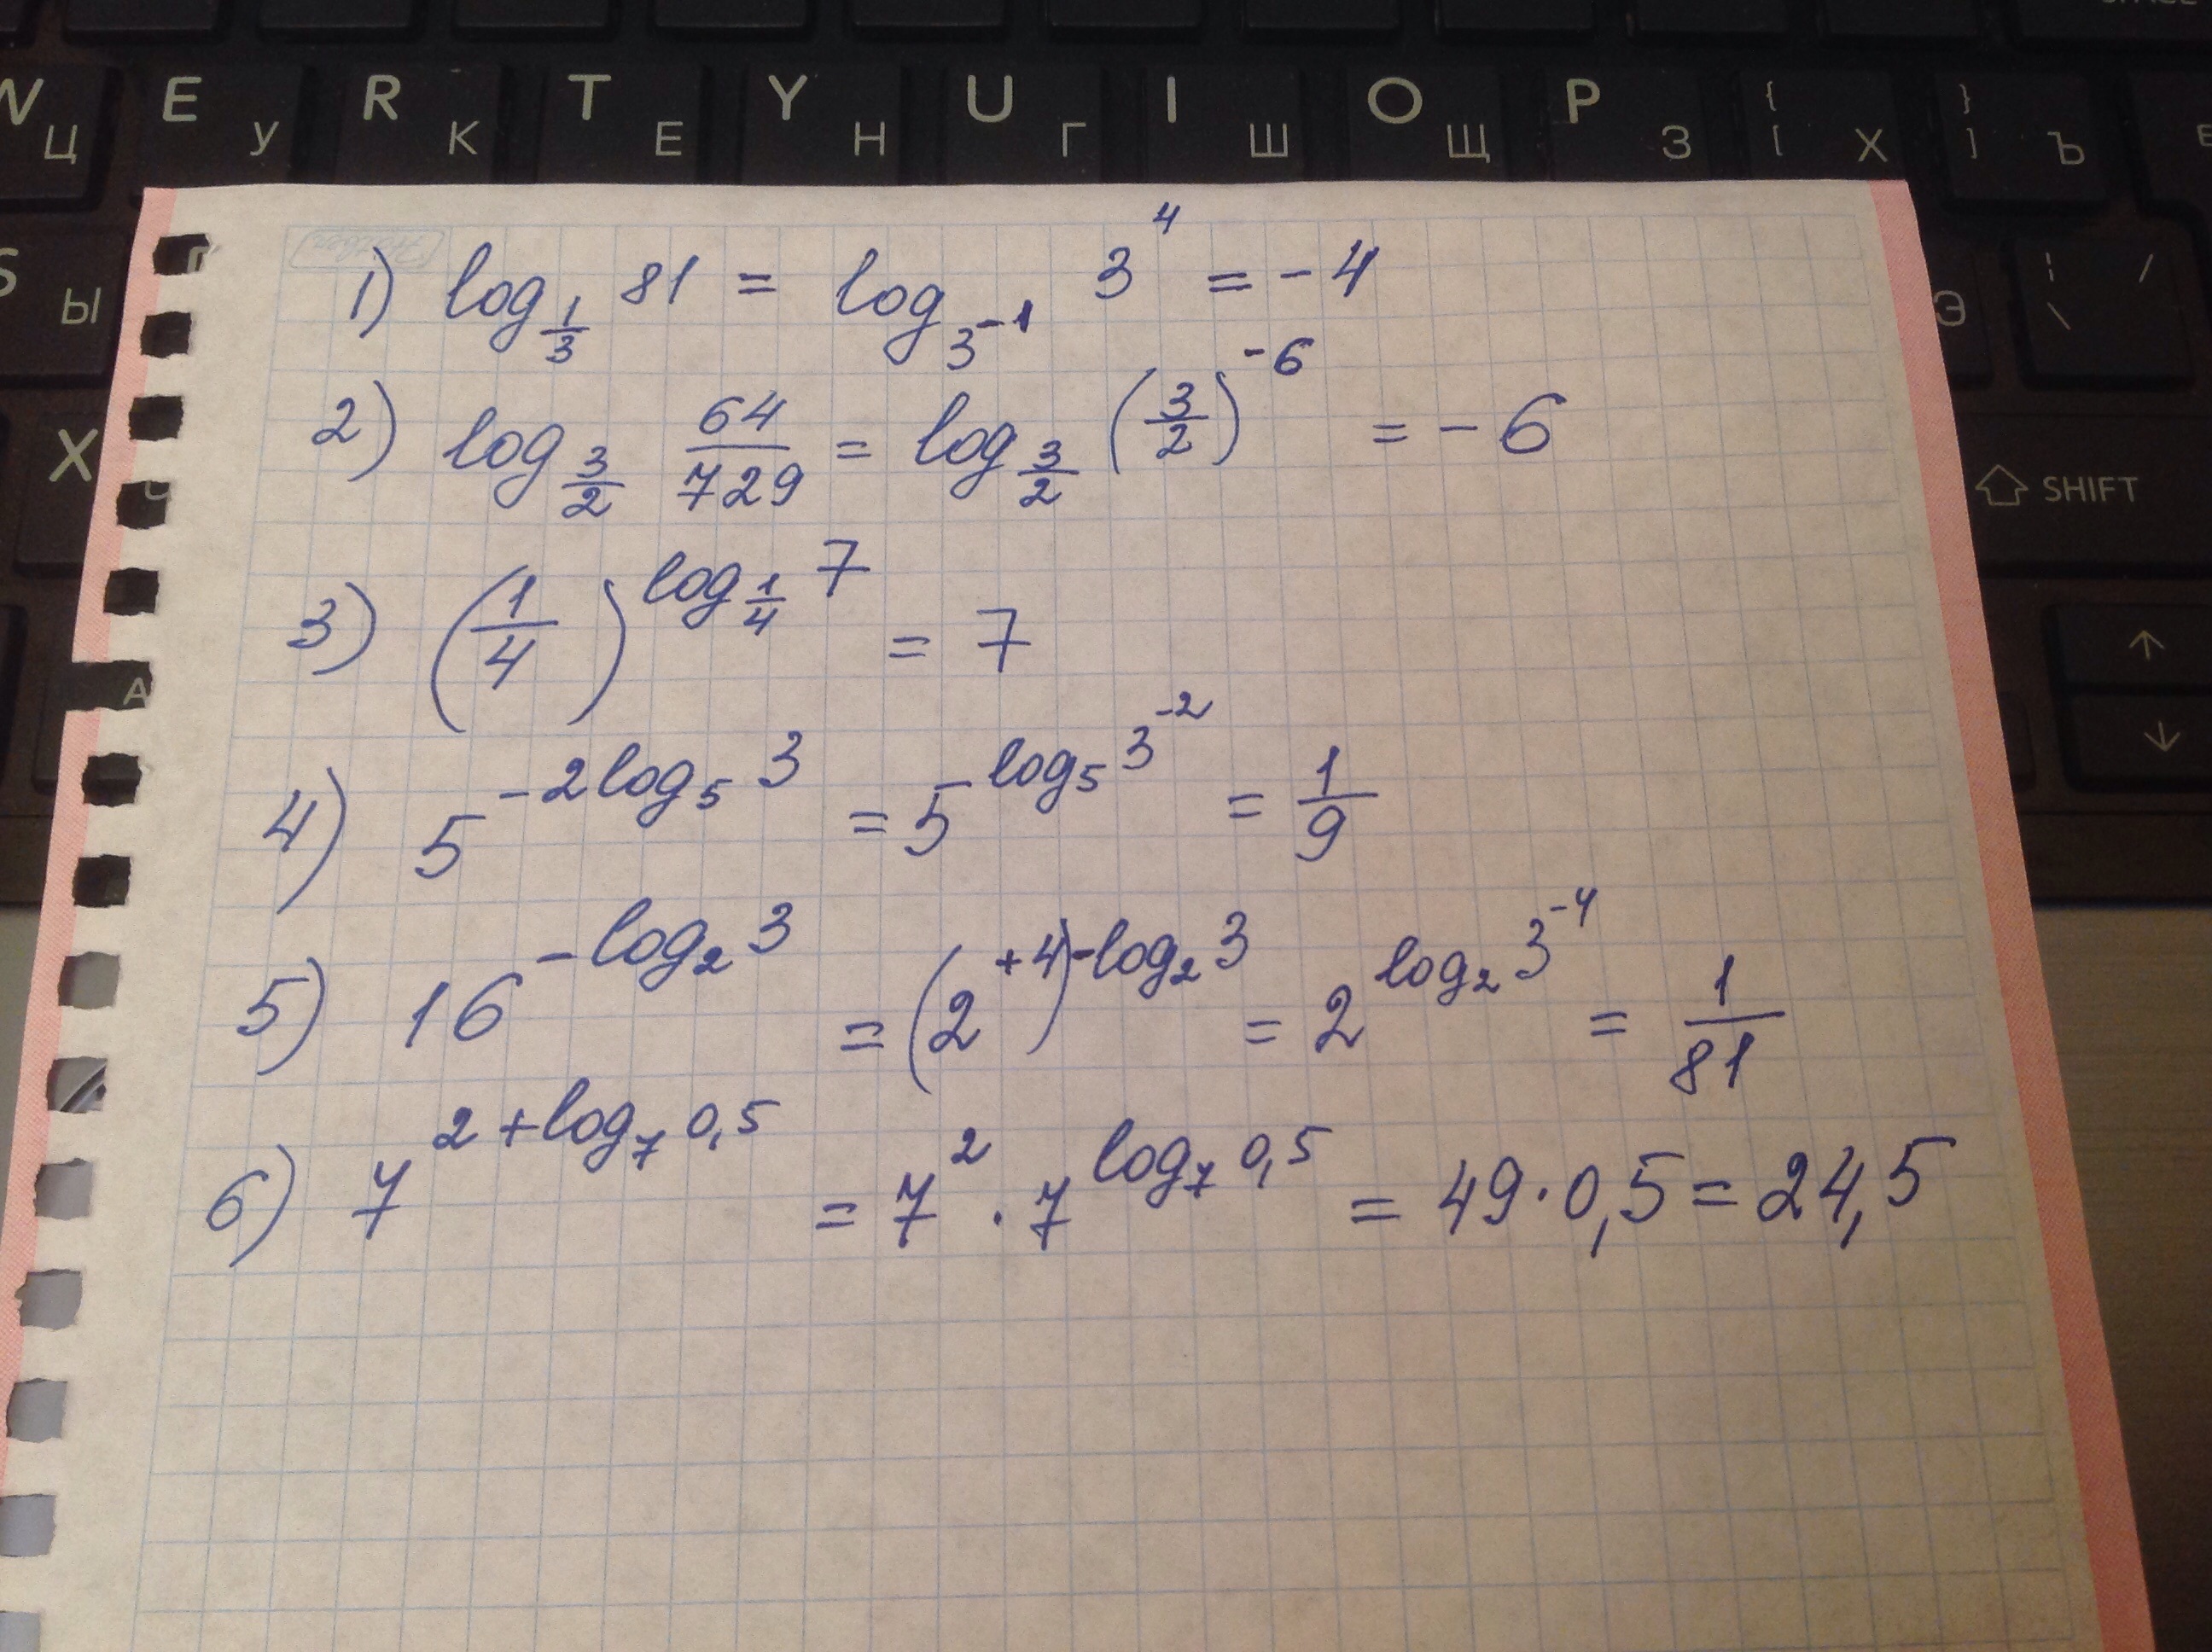 W Ц E У R К T Е Y Н U Г I Ш O Щ P З { [ Х } ] Ъ
1) log_{1/3} 81 = log_{3^{-1}} 3^4 = -4
S Ы Э ¦ \ /
2) log_{3/2} 64/729 = log_{3/2} (3/2)^{-6} = -6
X Ч SHIFT
3) (1/4)^{log_{1/4} 7} = 7
А ↑
4) 5^{-2log_5 3} = 5^{log_5 3^{-2}} = 1/9
↓
5) 16^{-log_2 3} = (2^{+4})^{-log_2 3} = 2^{log_2 3^{-4}} = 1/81
6) 7^{2+log_7 0,5} = 7^2 · 7^{log_7 0,5} = 49·0,5 = 24,5